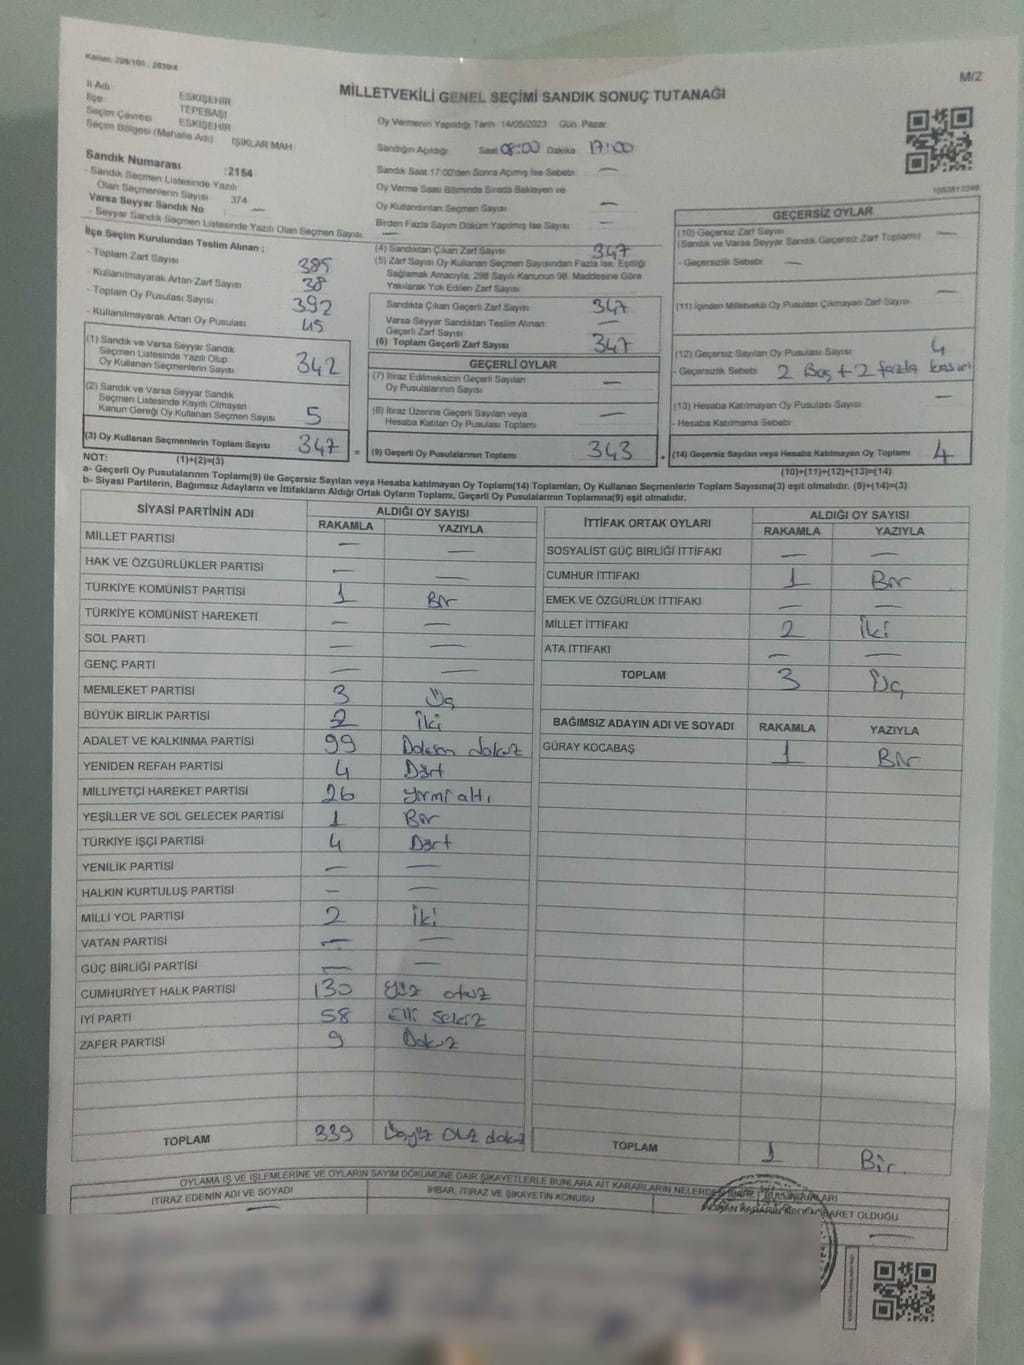 M/Z
MİLLETVEKİLİ GENEL SEÇİMİ SANDIK SONUÇ TUTANAĞI
İl Adı ESKİŞEHİR
İlçe TEPEBAŞI
Seçim Çevresi ESKİŞEHİR
Seçim Bölgesi (Mahalle Adı) IŞIKLAR MAH.
Sandık Numarası :2154
- Sandık Seçmen Listesinde Yazılı
Olan Seçmenlerin Sayısı 374
Varsa Seyyar Sandık No —
- Seyyar Sandık Seçmen Listesinde Yazılı Olan Seçmen Sayısı —
İlçe Seçim Kurulundan Teslim Alınan ;
- Toplam Zarf Sayısı 385
- Kullanılmayarak Artan Zarf Sayısı 38
- Toplam Oy Pusulası Sayısı 392
- Kullanılmayarak Artan Oy Pusulası 45
(1) Sandık ve Varsa Seyyar Sandık
Seçmen Listesinde Yazılı Olup
Oy Kullanan Seçmenlerin Sayısı 342
(2) Sandık ve Varsa Seyyar Sandık
Seçmen Listesinde Kayıtlı Olmayan
Kanun Gereği Oy Kullanan Seçmen Sayısı 5
(3) Oy Kullanan Seçmenlerin Toplam Sayısı 347 =
Oy Vermenin Yapıldığı Tarih :14/05/2023 Gün: Pazar
Sandığın Açıldığı Saat 08:00 Dakika 17:00
Sandık Saat 17:00'den Sonra Açılmış İse Sebebi —
Oy Verme Saati Bitiminde Sırada Bekleyen ve
Oy Kullandırılan Seçmen Sayısı —
Birden Fazla Sayım Döküm Yapılmış İse Sayısı —
(4) Sandıktan Çıkan Zarf Sayısı 347
(5) Zarf Sayısı Oy Kullanan Seçmen Sayısından Fazla İse, Eşitliği
Sağlamak Amacıyla, 298 Sayılı Kanunun 98. Maddesine Göre
Yakılarak Yok Edilen Zarf Sayısı
Sandıkta Çıkan Geçerli Zarf Sayısı 347
Varsa Seyyar Sandıktan Teslim Alınan
Geçerli Zarf Sayısı —
(6) Toplam Geçerli Zarf Sayısı 347
GEÇERLİ OYLAR
(7) İtiraz Edilmeksizin Geçerli Sayılan
Oy Pusulalarının Sayısı —
(8) İtiraz Üzerine Geçerli Sayılan veya
Hesaba Katılan Oy Pusulası Toplamı —
(9) Geçerli Oy Pusulalarının Toplamı 343 +
GEÇERSİZ OYLAR
(10) Geçersiz Zarf Sayısı —
(Sandık ve Varsa Seyyar Sandık Geçersiz Zarf Toplamı)
- Geçersizlik Sebebi: —
(11) İçinden Milletvekili Oy Pusulası Çıkmayan Zarf Sayısı —
(12) Geçersiz Sayılan Oy Pusulası Sayısı 4
- Geçersizlik Sebebi 2 Boş + 2 fazla
(13) Hesaba Katılmayan Oy Pusulası Sayısı —
- Hesaba Katılmama Sebebi
(14) Geçersiz Sayılan veya Hesaba Katılmayan Oy Toplamı 4
NOT: (1)+(2)=(3) (10)+(11)+(12)+(13)=(14)
a- Geçerli Oy Pusulalarının Toplamı(9) ile Geçersiz Sayılan veya Hesaba katılmayan Oy Toplamı(14) Toplamları, Oy Kullanan Seçmenlerin Toplam Sayısına(3) eşit olmalıdır. (9)+(14)=(3)
b- Siyasi Partilerin, Bağımsız Adayların ve İttifakların Aldığı Ortak Oyların Toplamı, Geçerli Oy Pusulalarının Toplamına(9) eşit olmalıdır.
SİYASİ PARTİNİN ADI ALDIĞI OY SAYISI
RAKAMLA YAZIYLA
MİLLET PARTİSİ — —
HAK VE ÖZGÜRLÜKLER PARTİSİ — —
TÜRKİYE KOMÜNİST PARTİSİ 1 Bir
TÜRKİYE KOMÜNİST HAREKETİ — —
SOL PARTİ — —
GENÇ PARTİ — —
MEMLEKET PARTİSİ 3 Üç
BÜYÜK BİRLİK PARTİSİ 2 İki
ADALET VE KALKINMA PARTİSİ 99 Doksan dokuz
YENİDEN REFAH PARTİSİ 4 Dört
MİLLİYETÇİ HAREKET PARTİSİ 26 Yirmi altı
YEŞİLLER VE SOL GELECEK PARTİSİ 1 Bir
TÜRKİYE İŞÇİ PARTİSİ 4 Dört
YENİLİK PARTİSİ — —
HALKIN KURTULUŞ PARTİSİ — —
MİLLİ YOL PARTİSİ 2 İki
VATAN PARTİSİ — —
GÜÇ BİRLİĞİ PARTİSİ — —
CUMHURİYET HALK PARTİSİ 130 Yüz otuz
İYİ PARTİ 58 Elli Sekiz
ZAFER PARTİSİ 9 Dokuz
TOPLAM 339 Üçyüz Otuz dokuz
İTTİFAK ORTAK OYLARI ALDIĞI OY SAYISI
RAKAMLA YAZIYLA
SOSYALİST GÜÇ BİRLİĞİ İTTİFAKI — —
CUMHUR İTTİFAKI 1 Bir
EMEK VE ÖZGÜRLÜK İTTİFAKI — —
MİLLET İTTİFAKI 2 İki
ATA İTTİFAKI — —
TOPLAM 3 Üç
BAĞIMSIZ ADAYIN ADI VE SOYADI RAKAMLA YAZIYLA
GÜRAY KOCABAŞ 1 Bir
TOPLAM 1 Bir.
OYLAMA İŞ VE İŞLEMLERİNE VE OYLARIN SAYIM DÖKÜMÜNE DAİR ŞİKAYETLERLE BUNLARA AİT KARARLARIN
İTİRAZ EDENİN ADI VE SOYADI İHBAR, İTİRAZ VE ŞİKAYETİN KONUSU